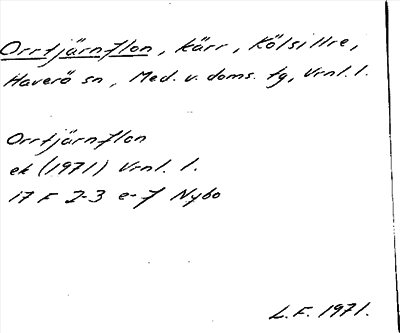 Orrtjärnflon, kärr, Kölsillre,
Haverö sn, Med. v. doms. tg, Vrnl. l.
Orrtjärnflon
ek (1971) Vrnl. l.
17 F 2-3 e-f Nybo
L.F. 1971.